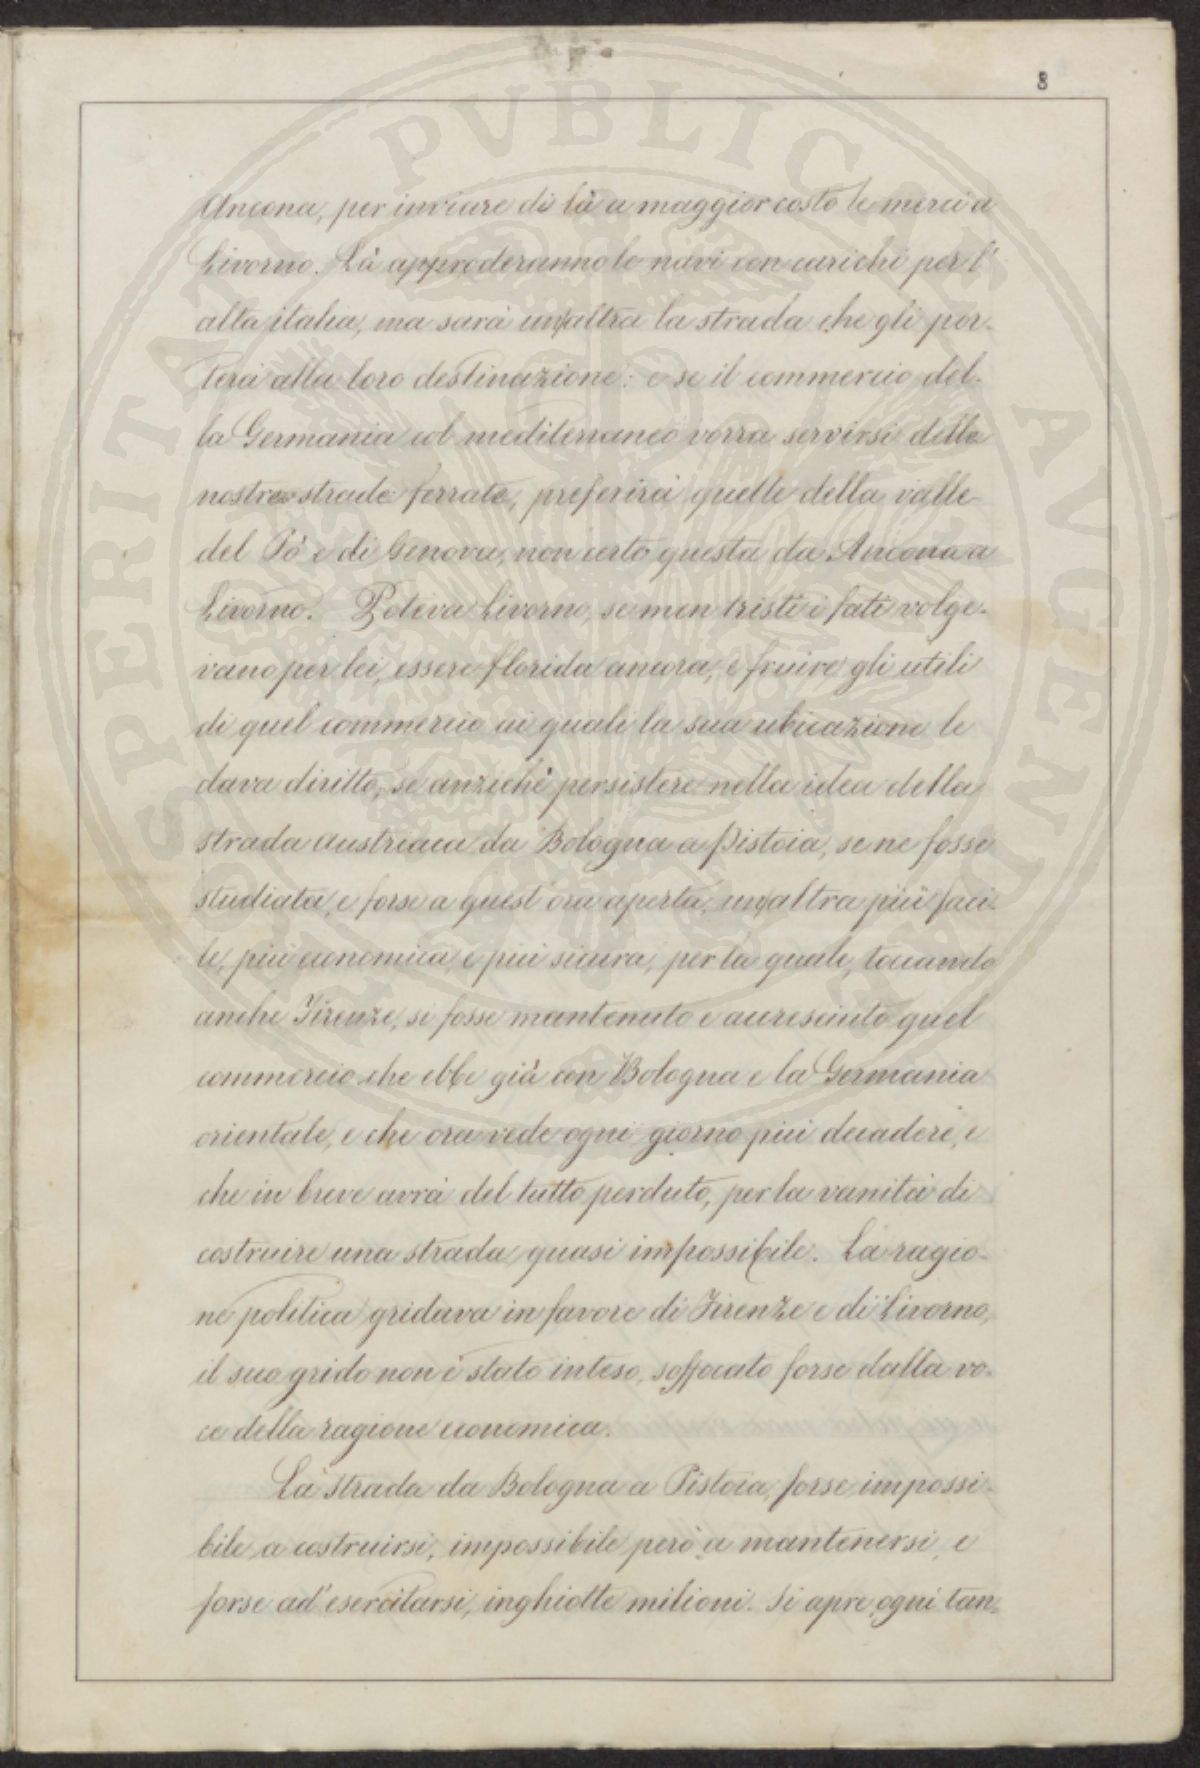 8
Ancona, per inviare di là a maggior costo le merci a
Livorno. Là approderanno le navi con carichi per l'
alta italia, ma sarà un'altra la strada che gli por-
terà alla loro destinazione: e se il commercio del-
la Germania col mediterraneo vorrà servirsi delle
nostre strade ferrate, preferirà quelle della valle
del Pò e di Genova, non certo questa da Ancona a
Livorno. Poteva Livorno, se men tristi i fati volge-
vano per lei, essere florida ancora, e fruire gli utili
di quel commercio ai quali la sua ubicazione le
dava diritto, se anzichè persistere nella idea della
strada austriaca da Bologna a Pistoia, se ne fosse
studiata, e forse a quest'ora aperta, un'altra più faci-
le, più economica, e più sicura, per la quale, toccando
anche Firenze, si fosse mantenuto e accresciuto quel
commercio che ebbe già con Bologna e la Germania
orientale, e che ora vede ogni giorno più decadere, e
che in breve avrà del tutto perduto, per la vanità di
costruire una strada quasi impossibile. La ragio-
ne politica gridava in favore di Firenze e di Livorno,
il suo grido non è stato inteso, soffocato forse dalla vo-
ce della ragione economica.
La strada da Bologna a Pistoia, forse impossi-
bile a costruirsi, impossibile però a mantenersi, e
forse ad esercitarsi, inghiotte milioni. Si apre ogni tan-
PROSPERITATI PVBLICAE AVGENDAE